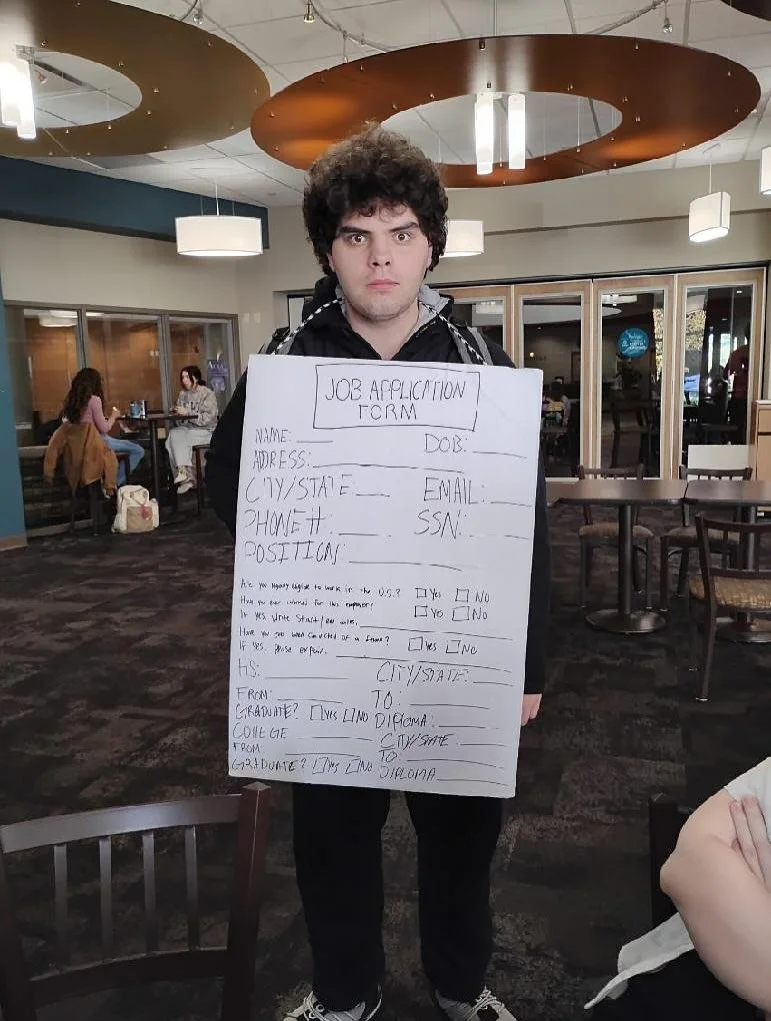 JOB APPLICATION
FORM
NAME: ___ DOB: ___
ADRESS: ___
CITY/STATE: ___ EMAIL: ___
PHONE #: ___ SSN: ___
POSITION: ___
Are you legally eligible to work in the U.S.? □ Yes □ NO
Have you ever for this employer? □ Yes □ No
If yes, write start/end
Have you ever been convicted of a felony? □ Yes □ No
If yes, please explain. ___
HS: ___ CITY/STATE: ___
FROM: ___ TO: ___
GRADUATE? □ Yes □ NO DIPLOMA: ___
COLLEGE ___ CITY/STATE ___
FROM: ___ TO: ___
GRADUATE? □ Yes □ NO DIPLOMA ___